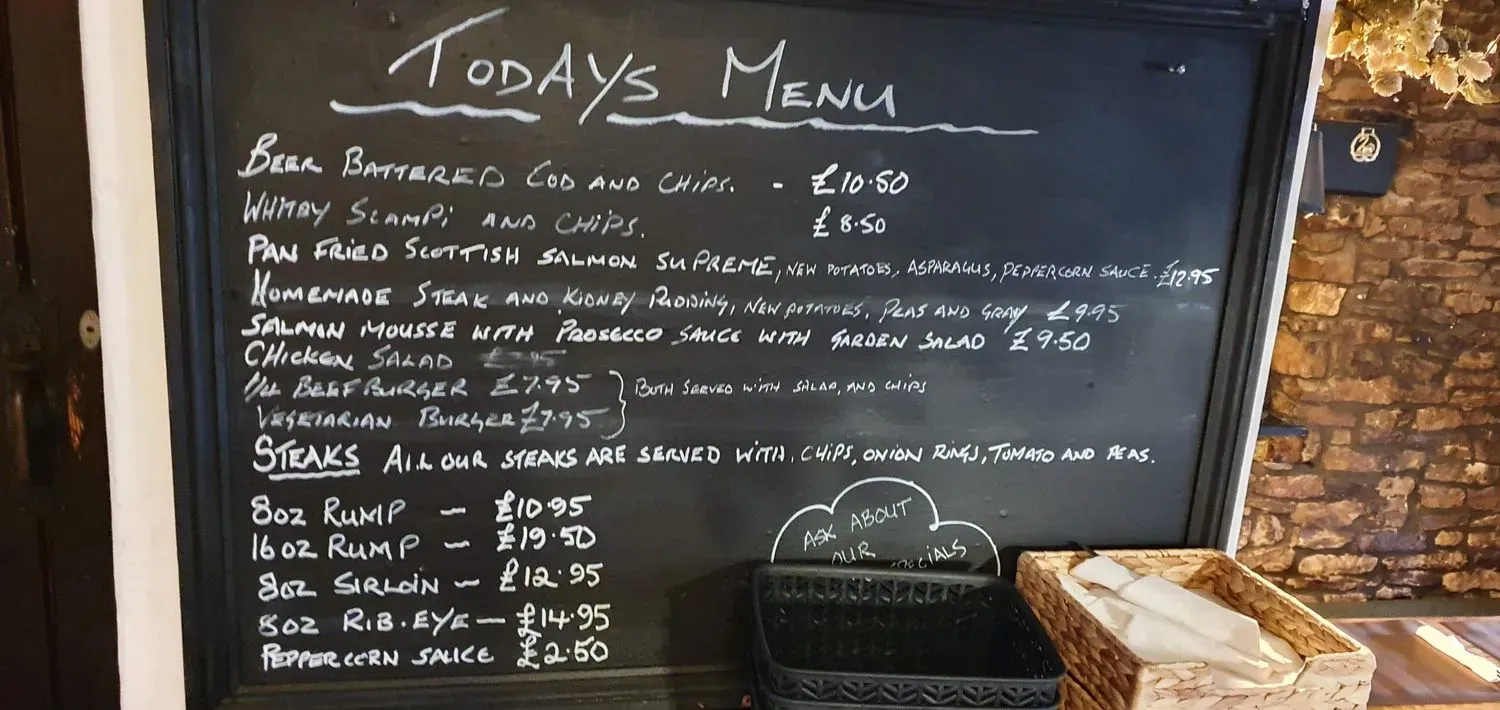 TODAYS MENU
BEER BATTERED COD AND CHIPS. - £10.50
WHITBY SCAMPI AND CHIPS. £8.50
PAN FRIED SCOTTISH SALMON SUPREME, NEW POTATOES, ASPARAGUS, PEPPERCORN SAUCE. £12.95
HOMEMADE STEAK AND KIDNEY PUDDING, NEW POTATOES, PEAS AND GRAVY £9.95
SALMON MOUSSE WITH PROSECCO SAUCE WITH GARDEN SALAD £9.50
CHICKEN SALAD
BEEF BURGER £7.95 } BOTH SERVED WITH SALAD, AND CHIPS
VEGETARIAN BURGER £7.95
STEAKS ALL OUR STEAKS ARE SERVED WITH, CHIPS, ONION RINGS, TOMATO AND PEAS.
8OZ RUMP — £10.95
16OZ RUMP — £19.50
8OZ SIRLOIN — £12.95
8OZ RIB.EYE — £14.95
PEPPERCORN SAUCE £2.50
ASK ABOUT
OUR